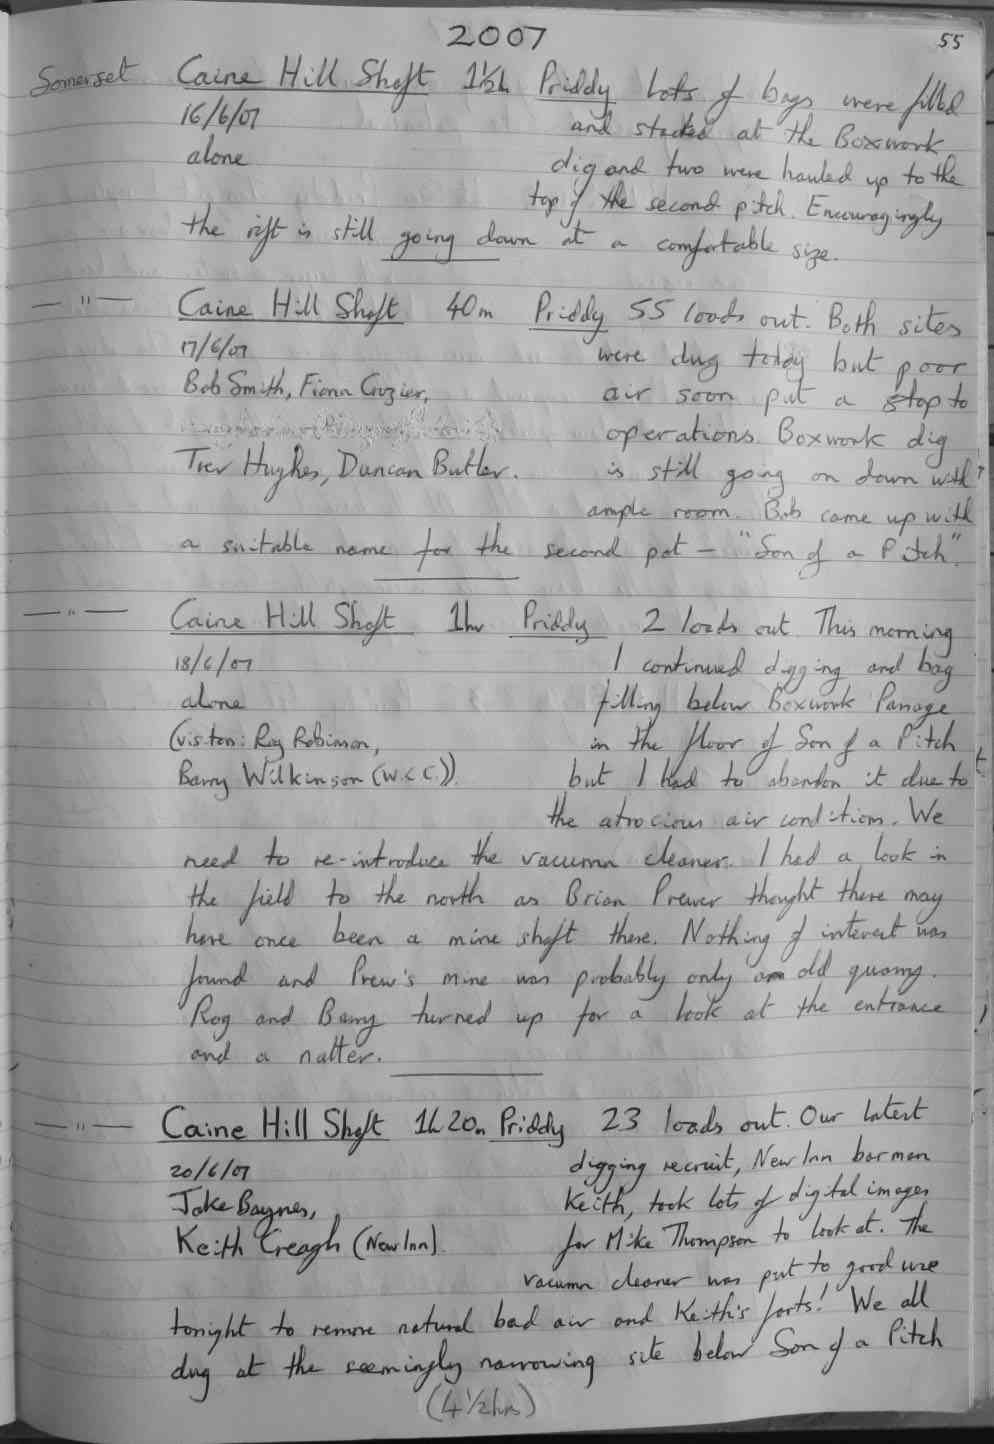 2007
55
Somerset Caine Hill Shaft 1½h Priddy Lots of bags were filled
16/6/07 and stacked at the Boxwork
alone dig and two were hauled up to the
top of the second pitch. Encouragingly
the rift is still going down at a comfortable size.
— " — Caine Hill Shaft 40m Priddy 55 loads out. Both sites
17/6/07 were dug today but poor
Bob Smith, Fiona Crozier, air soon put a stop to
operations. Boxwork dig
Trev Hughes, Duncan Butler. is still going on down with
ample room. Bob came up with
a suitable name for the second pot — "Son of a Pitch".
— " — Caine Hill Shaft 1hr Priddy 2 loads out. This morning
18/6/07 I continued digging and bag
alone filling below Boxwork Passage
(visitors: Rog Robinson, in the floor of Son of a Pitch
Barry Wilkinson (W.C.C.)). but I had to abandon it due to
the atrocious air conditions. We
need to re-introduce the vacumn cleaner. I had a look in
the field to the north as Brian Prewer thought there may
have once been a mine shaft there. Nothing of interest was
found and Prew's mine was probably only an old quarry.
Rog and Barry turned up for a look at the entrance
and a natter.
— " — Caine Hill Shaft 1h 20m Priddy 23 loads out. Our latest
20/6/07 digging recruit, New Inn barman
Jake Baynes, Keith, took lots of digital images
Keith Creagh (New Inn). for Mike Thompson to look at. The
vacumn cleaner was put to good use
tonight to remove natural bad air and Keith's farts! We all
dug at the seemingly narrowing site below Son of a Pitch
(4½hrs)